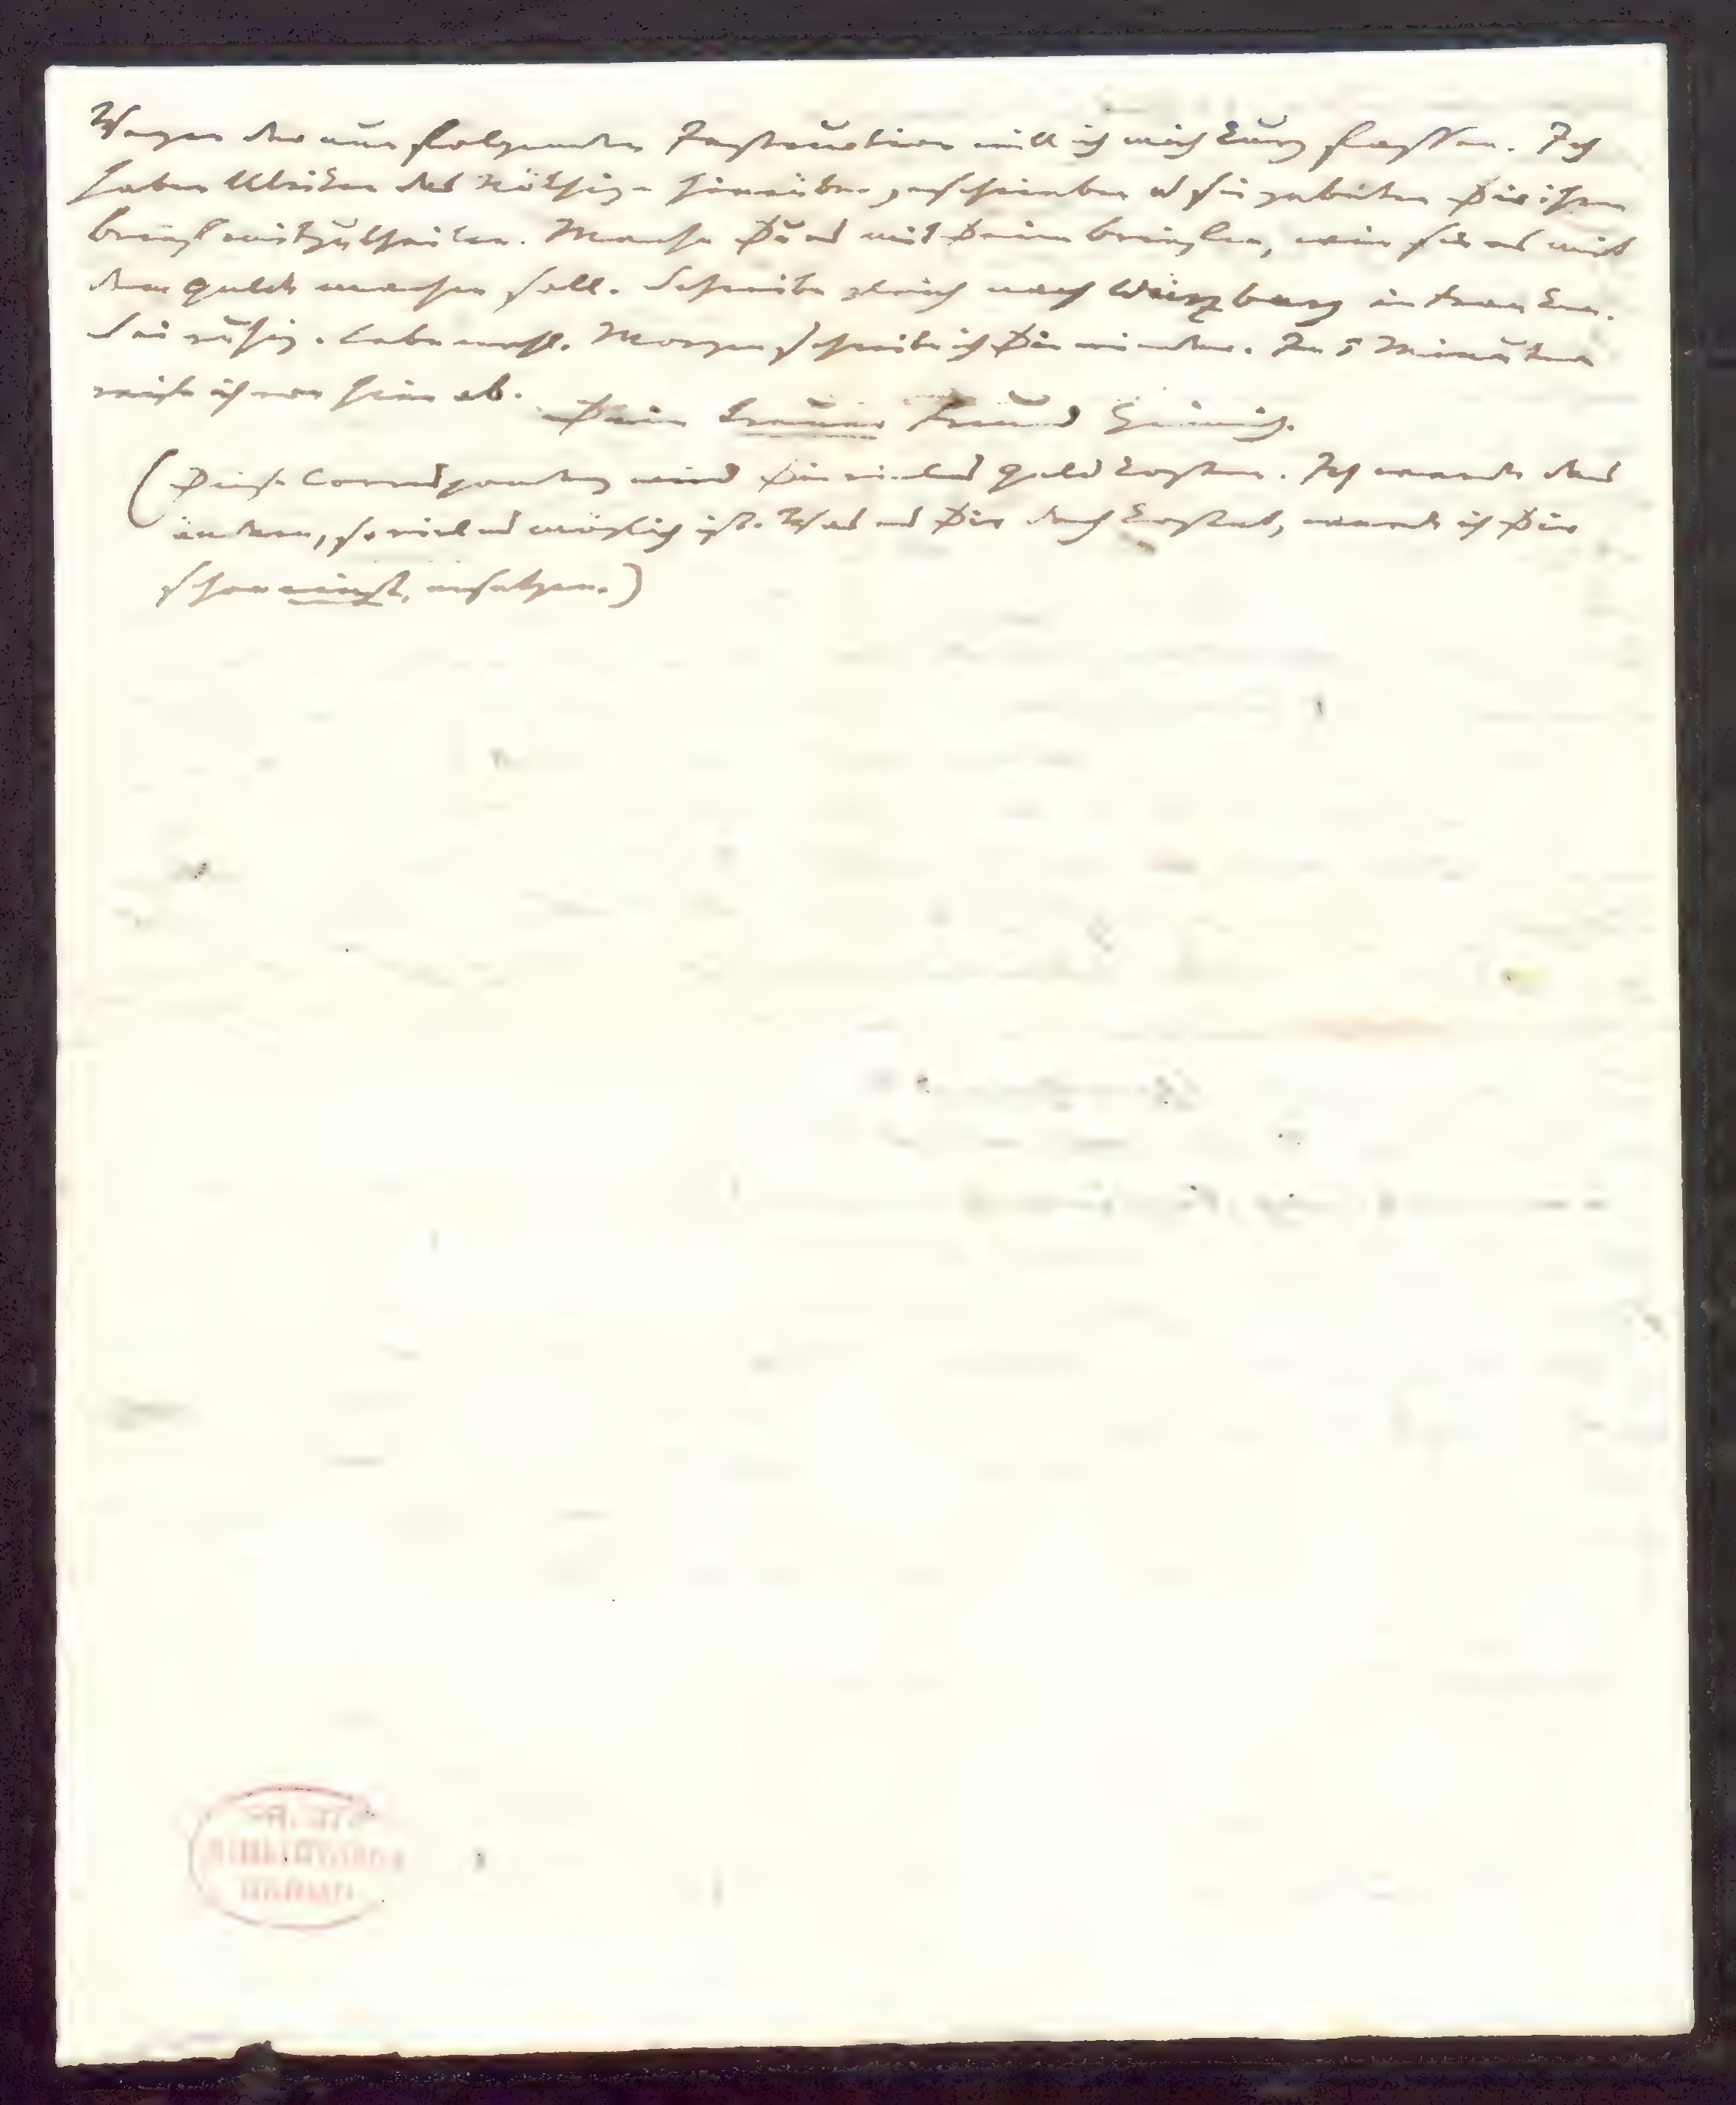 Wegen der nun folgenden Instruction will ich mich kurz fassen. Ich
habe Ulriken das Nöthige hierüber geschrieben u sie gebeten Dir ihren
Brief mitzutheilen. Mache Du es mit Deinen Briefen, wie sie es mit
dem Gelde machen soll. Schreibe gleich nach Würzburg in Franken.
Sei ruhig. Lebe wohl. Morgen schreib ich Dir wieder. In 5 Minuten
reise ich von hier ab.
Dein treuer Freund Heinrich.
(Diese Correspondenz wird Dir vieles Geld kosten. Ich werde das
ändern, so viel es möglich ist. Was es Dir doch kostet, werde ich Dir
schon einst ersetzen.)